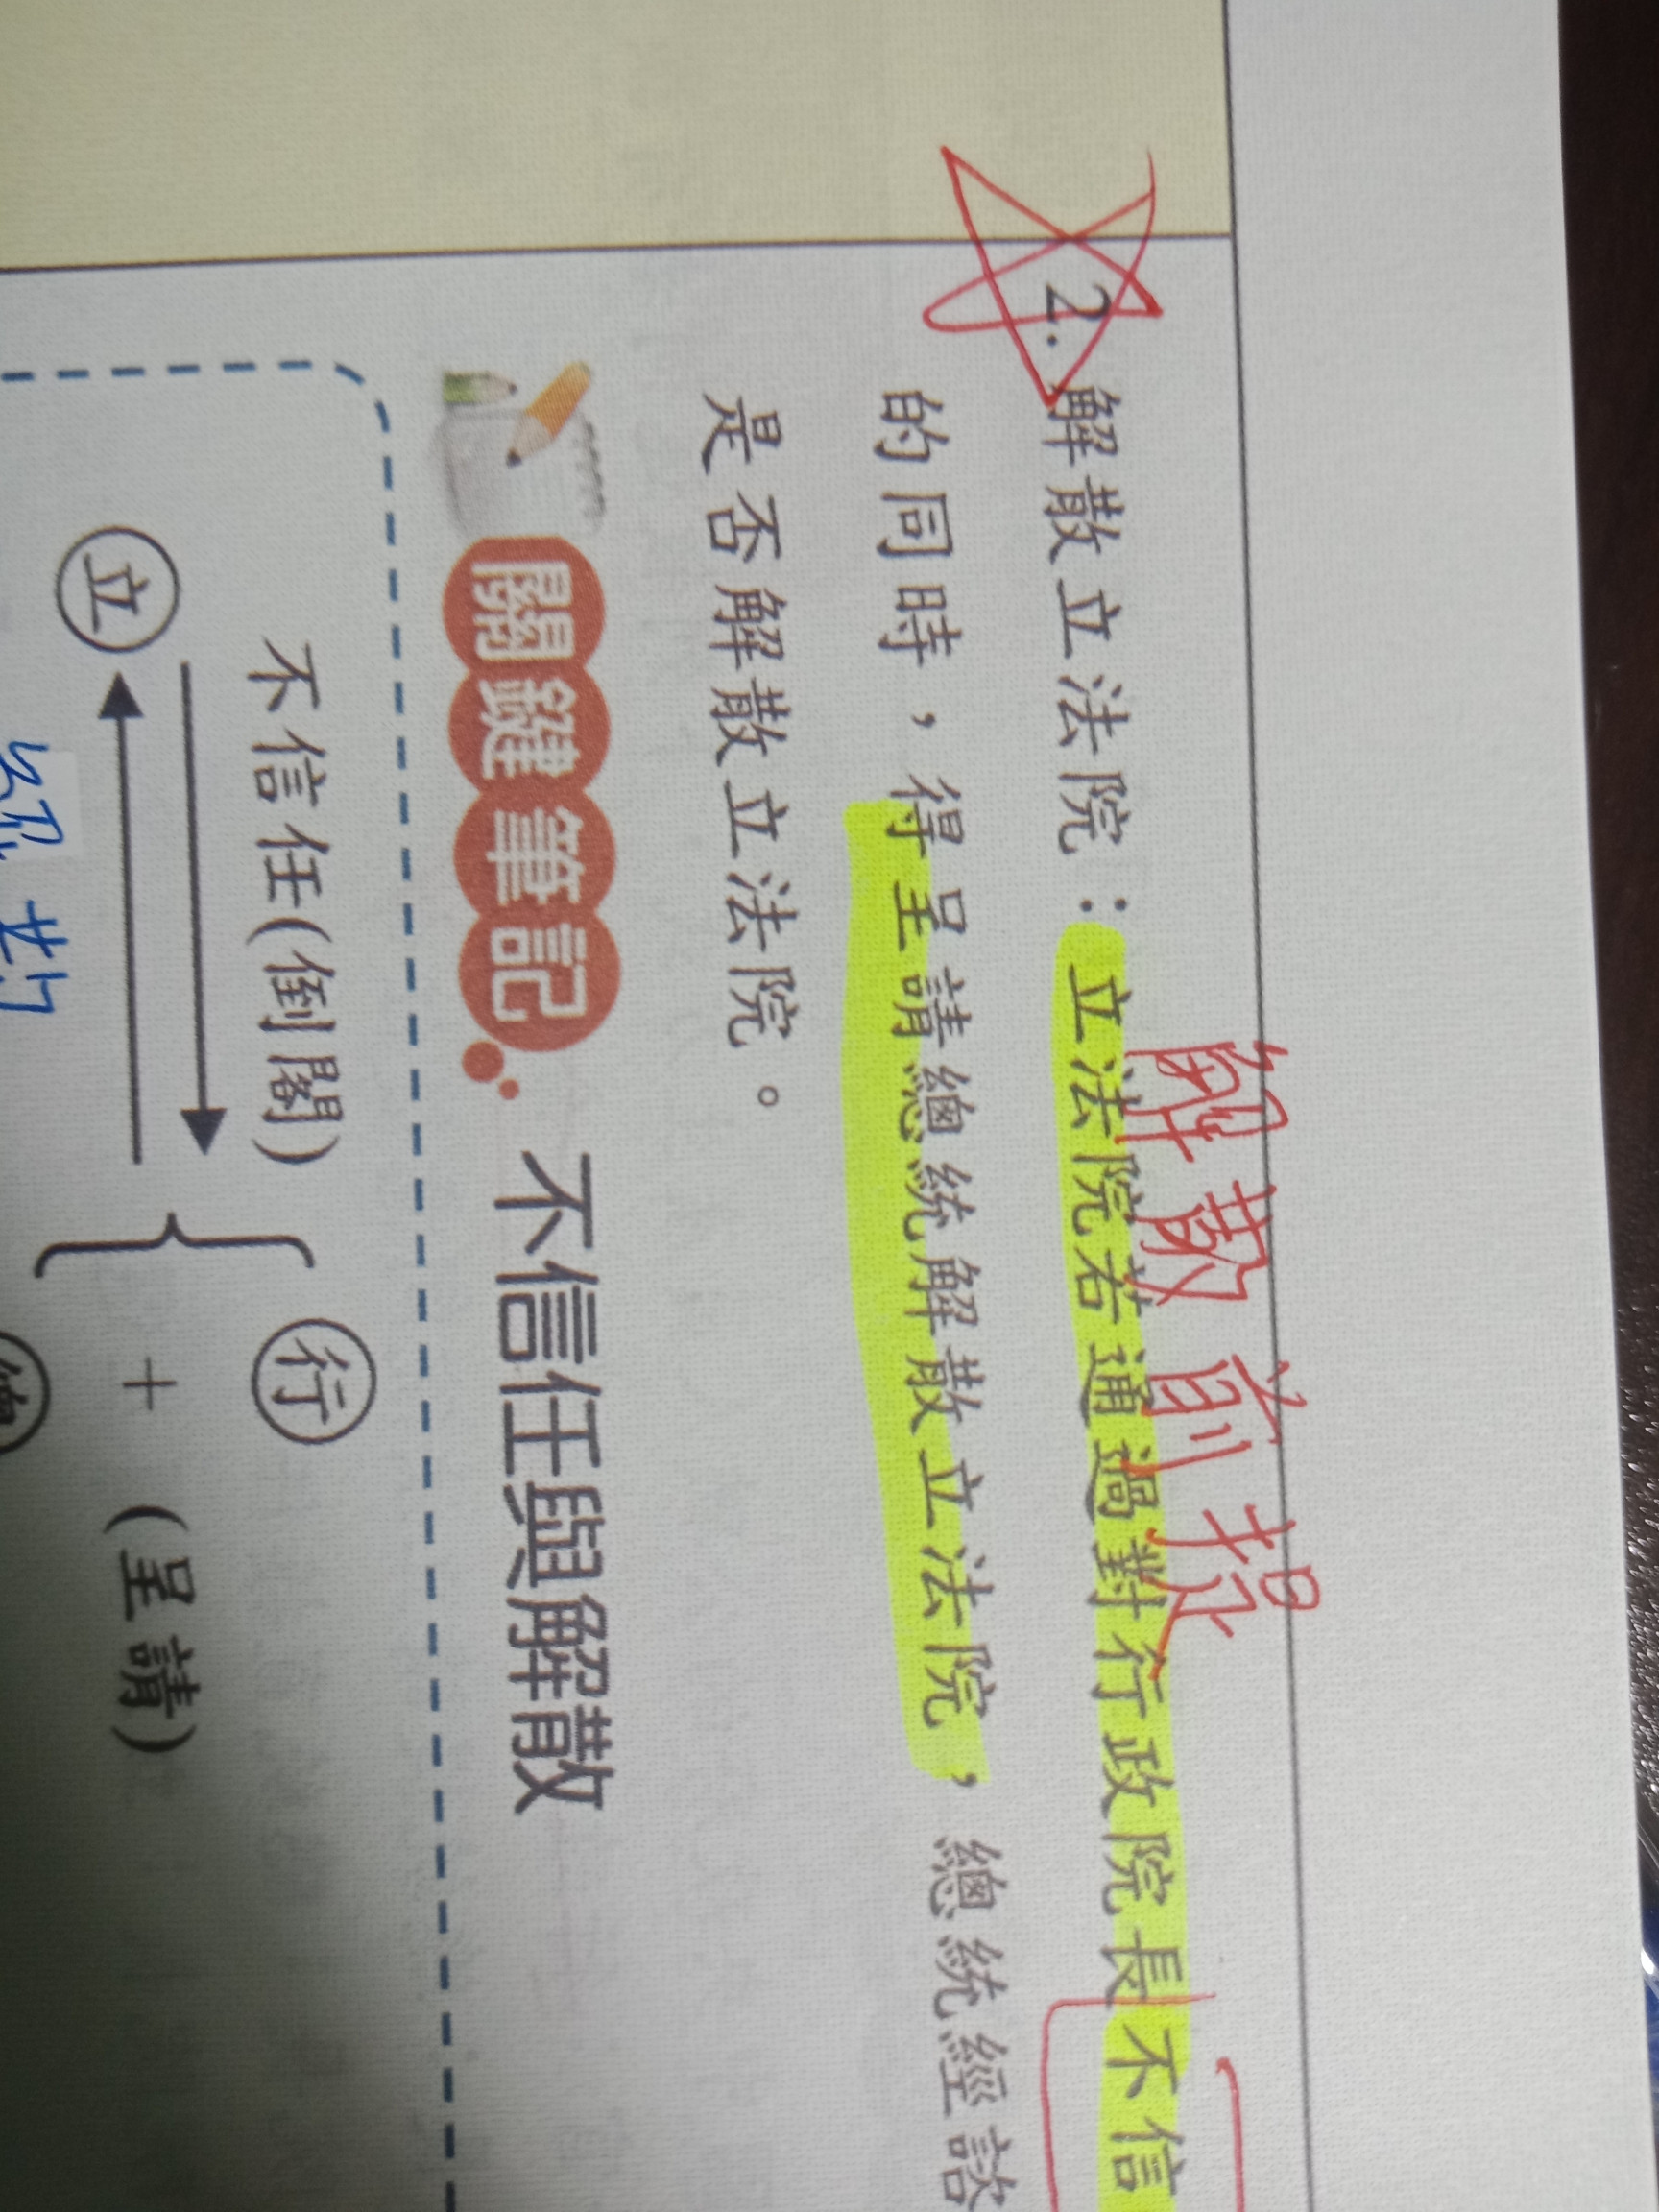 解散前提
2. 解散立法院：立法院若通過對行政院長不信
的同時，得呈請總統解散立法院，總統經諮
是否解散立法院。
關鍵筆記 不信任與解散
不信任(倒閣)
立
行
+ (呈請)